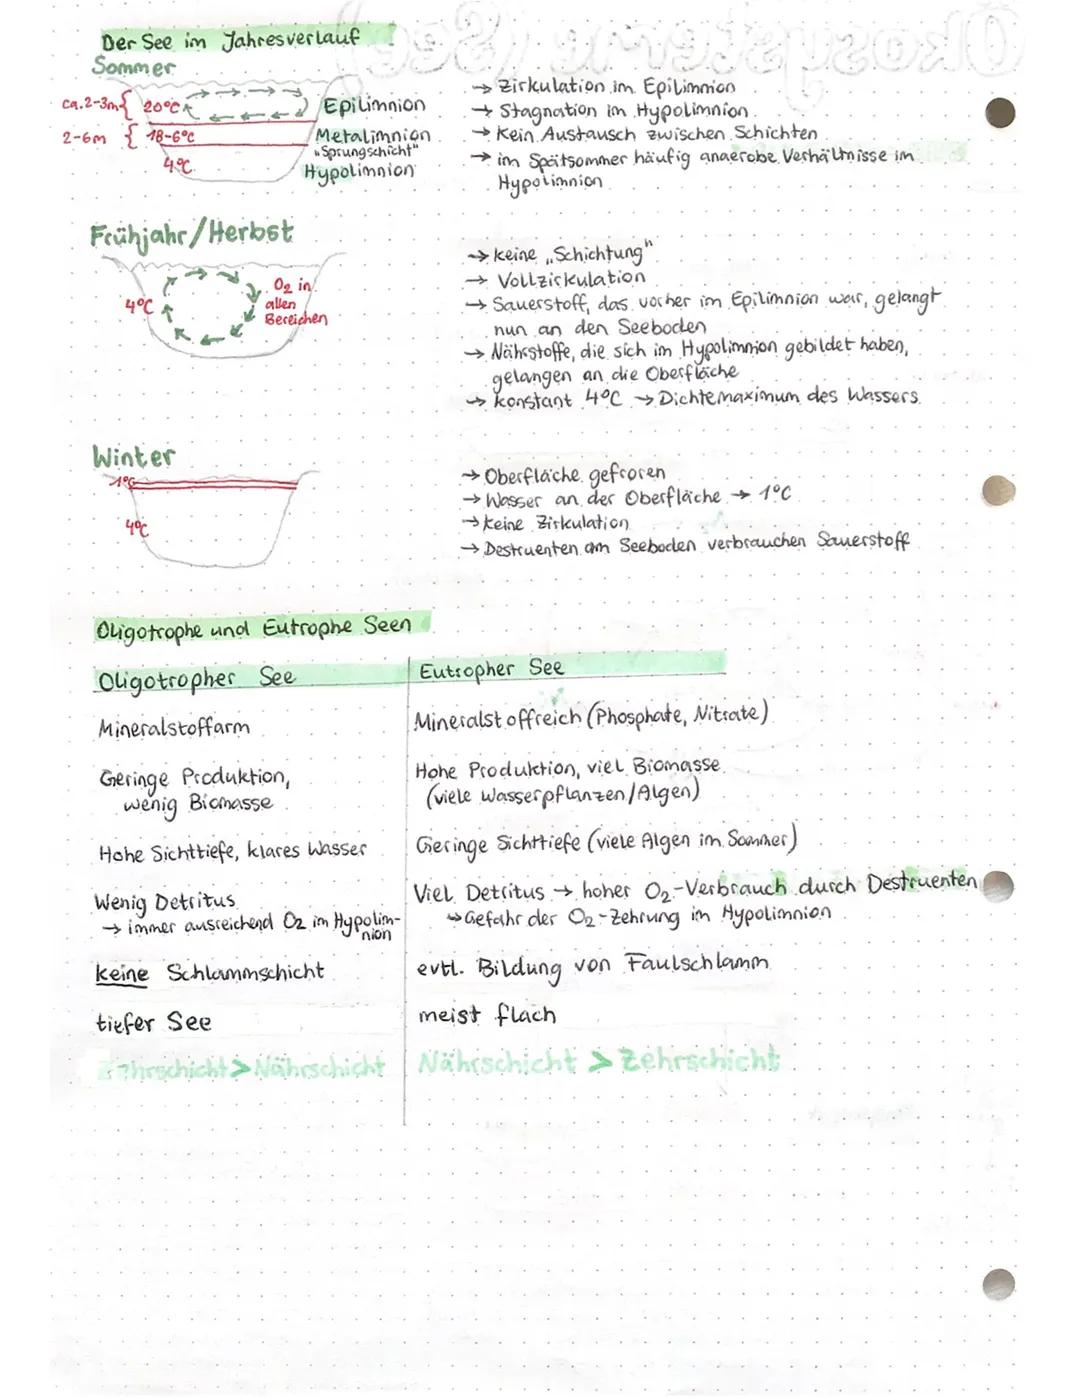 Der See im Jahresverlauf
Sommer
ca. 2-3m { 20°C Epilimnion
2-6m { 18-6°C Metalimnion
"Sprungschicht"
4°C Hypolimnion
→ Zirkulation im Epilimnion
→ Stagnation im Hypolimnion
→ Kein Austausch zwischen Schichten
→ im Spätsommer häufig anaerobe Verhältnisse im
Hypolimnion
Frühjahr/Herbst
4°C
O2 in
allen
Bereichen
→ keine „Schichtung"
→ Vollzirkulation
→ Sauerstoff, das vorher im Epilimnion war, gelangt
nun an den Seeboden
→ Nährstoffe, die sich im Hypolimnion gebildet haben,
gelangen an die Oberfläche
→ konstant 4°C → Dichtemaximum des Wassers
Winter
1°C
4°C
→ Oberfläche gefroren
→ Wasser an der Oberfläche → 1°C
→ keine Zirkulation
→ Destruenten am Seeboden verbrauchen Sauerstoff
Oligotrophe und Eutrophe Seen
Oligotropher See
Eutropher See
Mineralstoffarm
Mineralstoffreich (Phosphate, Nitrate)
Geringe Produktion,
wenig Biomasse
Hohe Produktion, viel Biomasse
(viele Wasserpflanzen/Algen)
Hohe Sichttiefe, klares Wasser
Geringe Sichttiefe (viele Algen im Sommer)
Wenig Detritus
→ immer ausreichend O2 im Hypolim-
nion
Viel Detritus → hoher O2-Verbrauch durch Destruenten
↳ Gefahr der O2-Zehrung im Hypolimnion
keine Schlammschicht
evtl. Bildung von Faulschlamm
tiefer See
meist flach
Zehrschicht > Nährschicht
Nährschicht > Zehrschicht